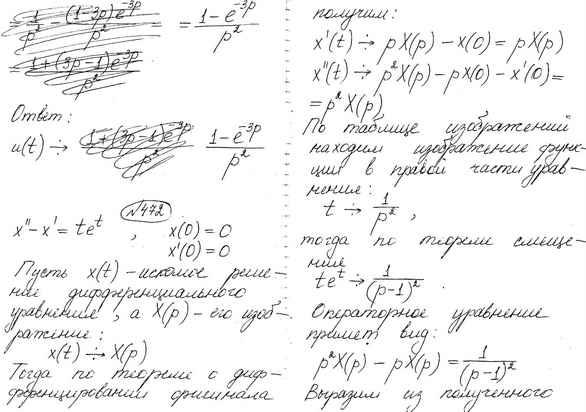 = (1-e^{-3p})/p²
Ответ:
u(t) ⋅→ (1-e^{-3p})/p²
№472
x''-x' = te^t , x(0) = 0
x'(0) = 0
Пусть x(t) - искомое реше-
ние дифференциального
уравнения, а X(p) - его изоб-
ражение:
x(t) ⋅→ X(p)
Тогда по теореме о диф-
ференцировании оригинала
получим:
x'(t) ⋅→ pX(p) - x(0) = pX(p)
x''(t) ⋅→ p²X(p) - pX(0) - x'(0) =
= p²X(p)
По таблице изображений
находим изображение функ-
ции в правой части урав-
нения:
t ⋅→ 1/p² ,
тогда по теореме смеще-
ния
te^t ⋅→ 1/(p-1)² .
Операторное уравнение
примет вид:
p²X(p) - pX(p) = 1/(p-1)²
Выразим из полученного